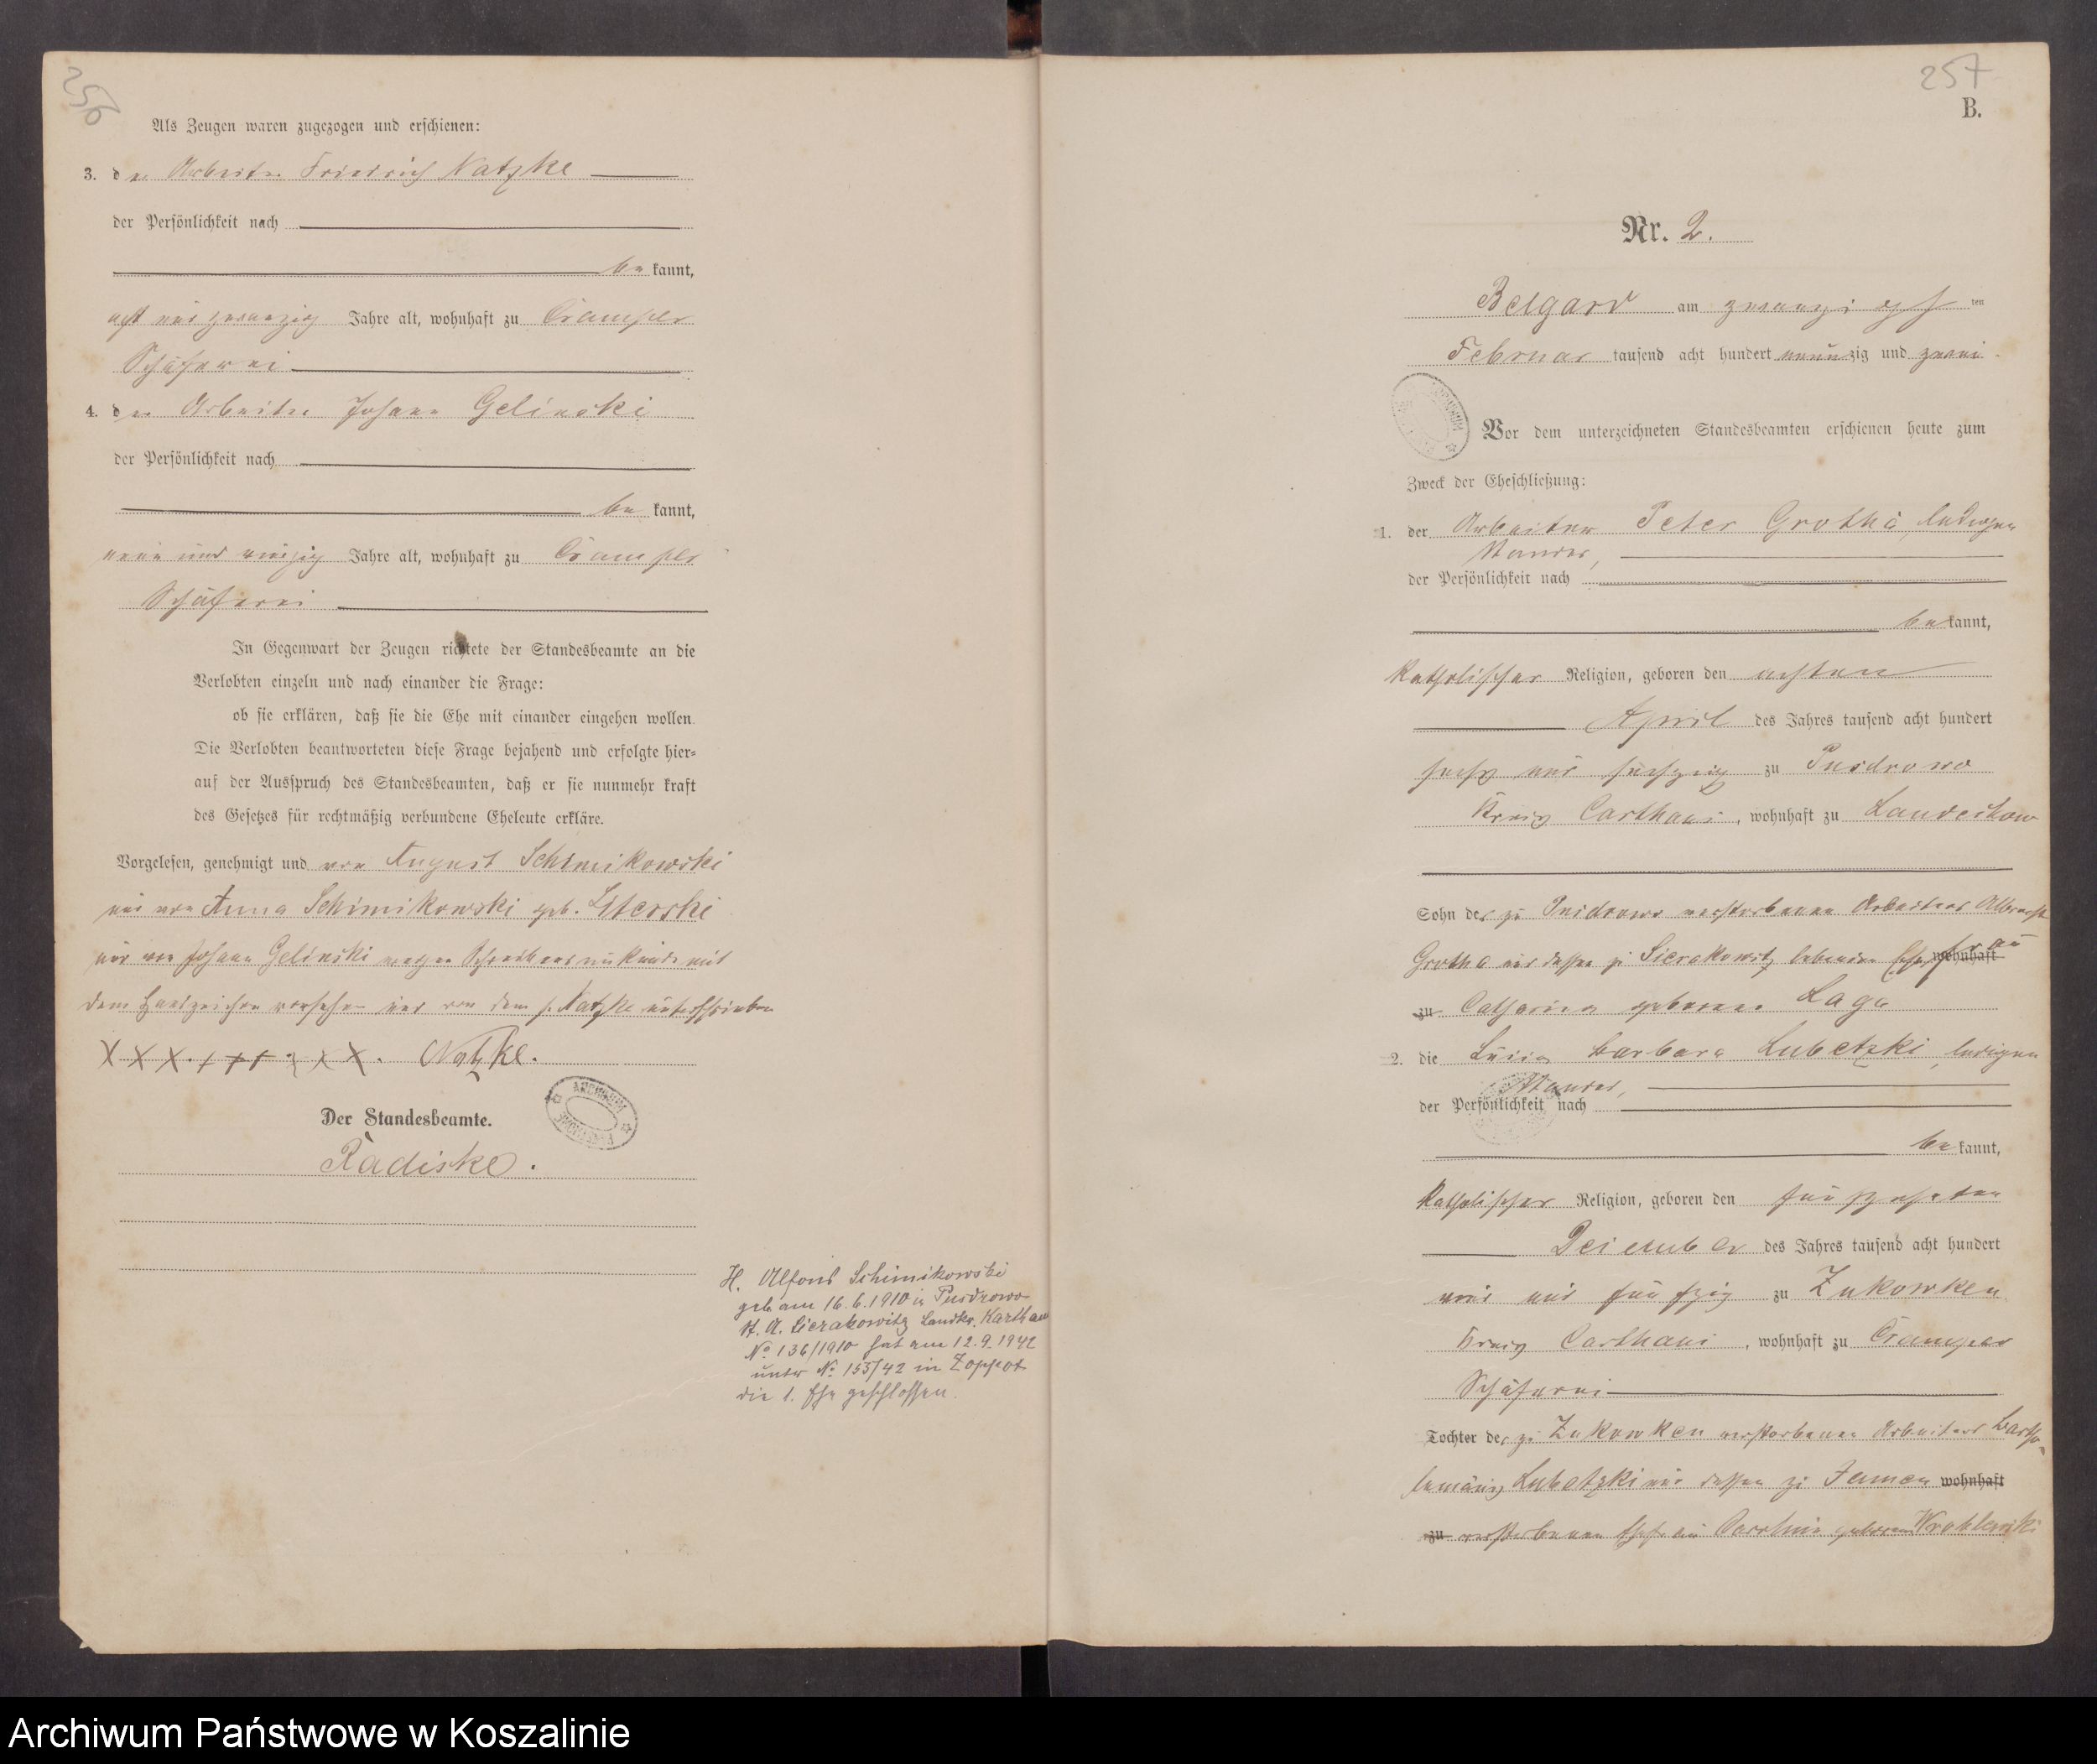 256
Als Zeugen waren zugezogen und erschienen:
3. der Arbeiter Friedrich Natzke
der Persönlichkeit nach
bekannt,
acht und zwanzig Jahre alt, wohnhaft zu Crampes
Schäferei
4. der Arbeiter Johann Gelinski
der Persönlichkeit nach
bekannt,
neun und vierzig Jahre alt, wohnhaft zu Crampes
Schäferei
In Gegenwart der Zeugen richtete der Standesbeamte an die
Verlobten einzeln und nach einander die Frage:
ob sie erklären, daß sie die Ehe mit einander eingehen wollen.
Die Verlobten beantworteten diese Frage bejahend und erfolgte hier-
auf der Ausspruch des Standesbeamten, daß er sie nunmehr kraft
des Gesetzes für rechtmäßig verbundene Eheleute erkläre.
Vorgelesen, genehmigt und von August Schimikowski
und von Anna Schimikowski geb.
und von Johann Gelinski wegen Schreibensunkunde mit
dem Handzeichen versehen und von dem p. Natzke unterschrieben
X X X. + + +. X X. Natzke.
Der Standesbeamte.
Radiske.
H. Alfons Schimikowski
geb. am 16.6.1910 in Pusdrowo
St. A. Sierakowitz Landkr. Karthaus
No 136/1910 hat am 12.9.1942
unter No 153/42 in Zoppot
die 1. Ehe geschlossen.
257
B.
Nr. 2.
Belgard am zwanzigsten
Februar tausend acht hundert neunzig und zwei
Vor dem unterzeichneten Standesbeamten erschienen heute zum
Zweck der Eheschließung:
1. der Arbeiter Peter Grotha, ledigen
Standes,
der Persönlichkeit nach
bekannt,
katholischer Religion, geboren den achten
April des Jahres tausend acht hundert
sechs und sechzig zu Pusdrowo
Kreis Carthaus, wohnhaft zu Landechow
Sohn des zu Pusdrowo verstorbenen Arbeiters Albrecht
Grotha und dessen zu Sierakowitz lebenden Ehefrau wohnhaft
zu Catharina geborene Laga
2. die Luise Barbara Lubetzki, ledigen
Standes,
der Persönlichkeit nach
bekannt,
katholischer Religion, geboren den fünfzehnten
Dezember des Jahres tausend acht hundert
und fünfzig zu Zukowken
Kreis Carthaus, wohnhaft zu Crampes
Schäferei
Tochter des zu Zukowken verstorbenen Arbeiters Bartho-
lomäus Lubetzki und dessen zu Jamen wohnhaft
zu verstorbenen Ehefrau Caroline geborene Wroblewski
Archiwum Państwowe w Koszalinie